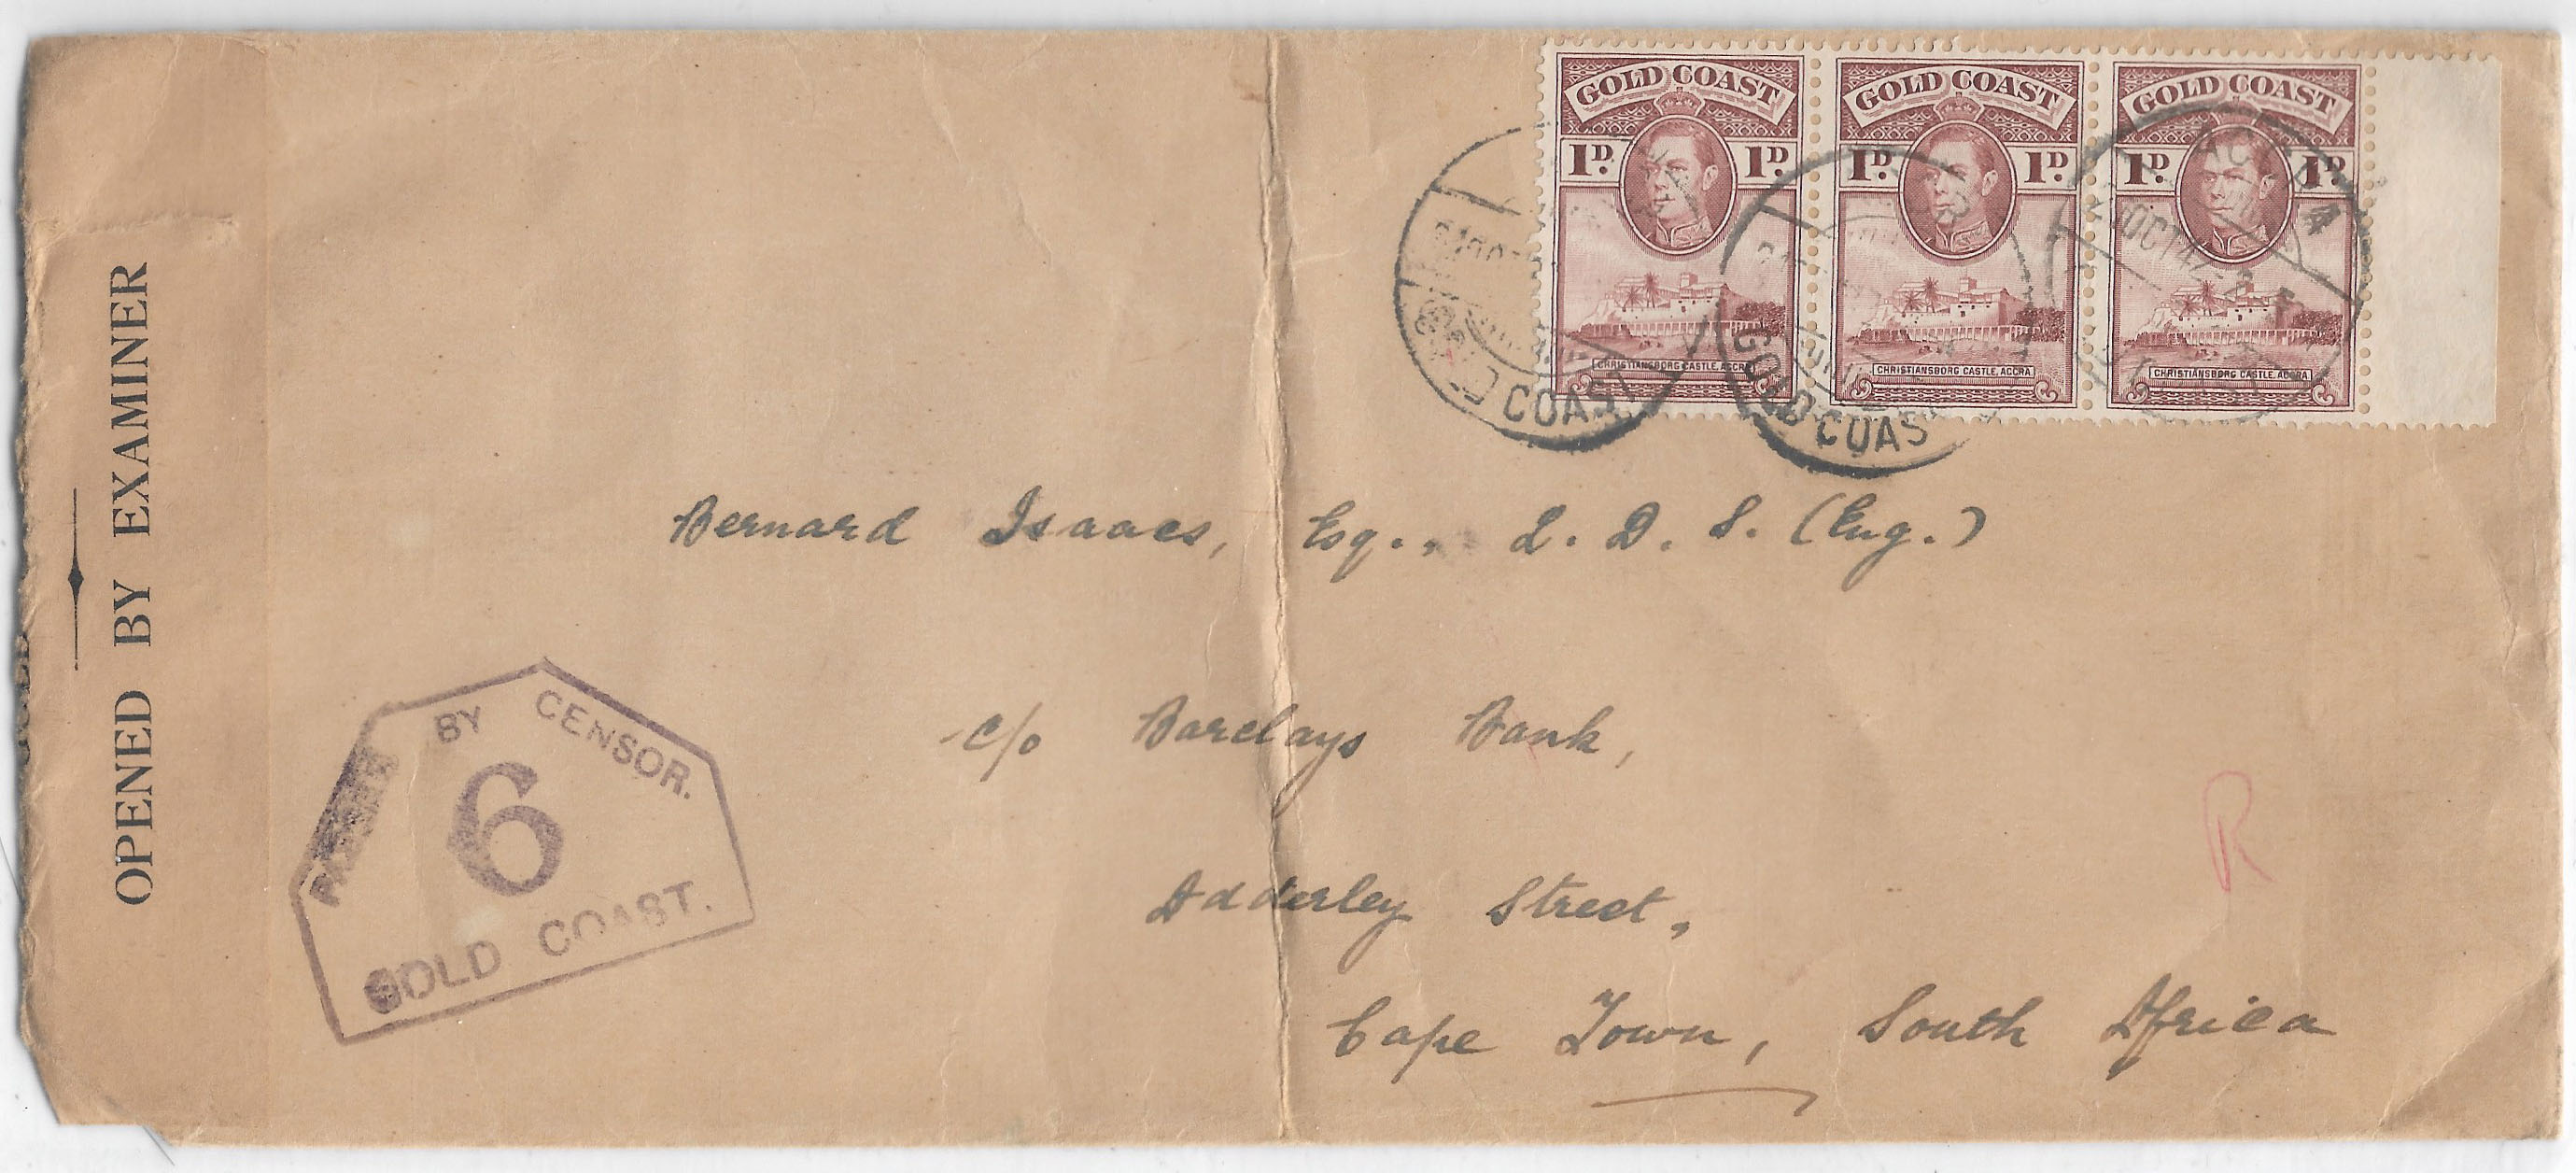 GOLD COAST
1D. 1D.
CHRISTIANSBORG CASTLE, ACCRA
GOLD COAST
1D. 1D.
CHRISTIANSBORG CASTLE, ACCRA
GOLD COAST
1D. 1D.
CHRISTIANSBORG CASTLE, ACCRA
COAST
GOLD COAS
OCT 42
OPENED BY EXAMINER
Bernard Isaacs, Esq., L. D. S. (Eng.)
c/o Barclays Bank,
Adderley Street,
Cape Town, South Africa
R
PASSED BY CENSOR.
6
GOLD COAST.